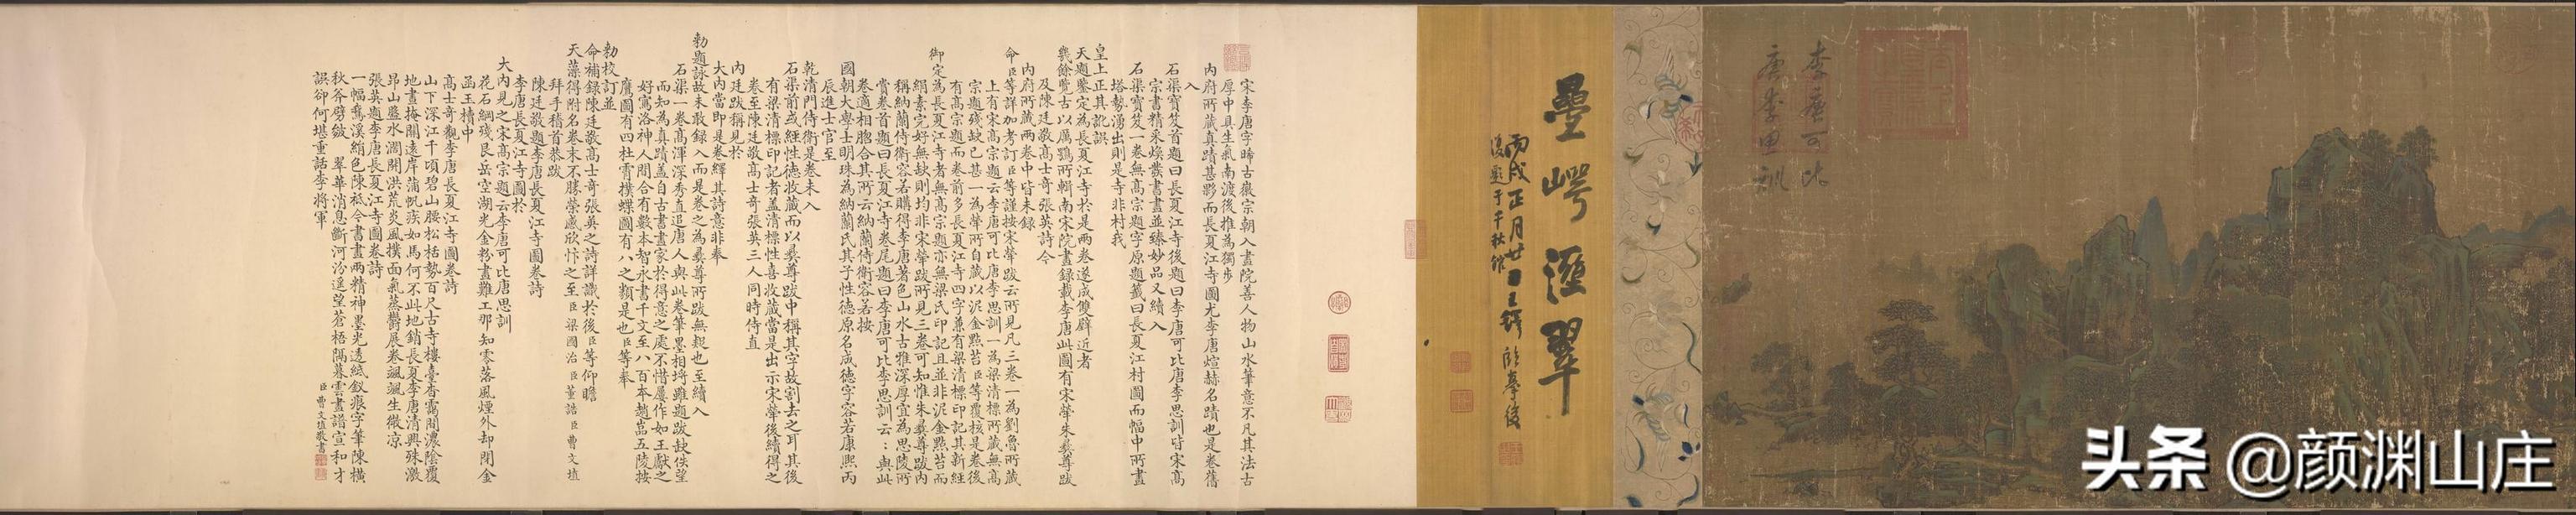 李唐可比
唐李思訓
疊嶂滙翠
丙戌正月廿日王鐸
後題于千秋館
宋李唐字晞古徽宗朝入畫院善人物山水筆意不凡其法古
厚中具生氣南渡後推為獨步
内府所藏真蹟甚夥而長夏江寺圖尤李唐煊赫名蹟也是卷舊
入
石渠寶笈首題曰長夏江寺後題曰李唐可比唐李思訓皆宋高
宗書精采煥發書畫並臻妙品又續入
石渠寶笈一卷無高宗題字原題籤曰長夏江村圖而幅中所畫
塔勢湧出則是寺非村我
皇上正其訛誤
天題鑒定為長夏江寺於是兩卷遂成雙璧近者
幾餘覽古以厲鶚所輯南宋院畫録載李唐此圖有宋犖朱彝尊跋
及陳廷敬高士奇張英詩今
内府所藏兩卷中皆未録
命臣等詳加考訂臣等謹按宋犖跋云所見凡三卷一為劉魯所藏
上有宋高宗題云李唐可比唐李思訓一為梁清標所藏無高
宗題殘缺已甚一為犖所自藏以泥金點苔臣等覆核是卷後
有高宗題而卷前多長夏江寺四字兼有梁清標印記其新經
御定為長夏江寺者無高宗題亦無梁氏印記且並非泥金點苔而
絹素完好無缺則均非宋犖跋所見三卷可知惟朱彝尊跋内
稱納蘭侍衛容若購得李唐著色山水古雅深厚宜為思陵所
賞卷首題曰長夏江寺卷尾題曰李唐可比李思訓云云與此
卷適相脗合其所云納蘭侍衛容若按
國朝大學士明珠為納蘭氏其子性德原名成德字容若康熙丙
辰進士官至
乾清門侍衛是卷未入
石渠前或經性德收藏而以彝尊跋中稱其字故割去之耳其後
有梁清標印記者蓋清標性喜收藏當是出示宋犖後續得之
卷至陳廷敬高士奇張英三人同時侍直
内廷跋稱見於
大内當即是卷繹其詩意非奉
勅題詠故未敢録入而是卷之為彝尊所跋無疑也至續入
石渠一卷高渾深秀直追唐人與此卷筆墨相埒雖題跋缺佚望
而知為真蹟蓋自古書畫家於得意之處不惜屢作如王獻之
好寫洛神人間合有數本智永書千文至八百本趙嵓五陵按
鷹圖有四杜霄撲蝶圖有八之類是也臣等奉
勅校訂並
命補録陳廷敬高士奇張英之詩詳識於後臣等仰瞻
天藻得附名卷末不勝榮感欣忭之至臣梁國治臣董誥臣曹文埴
拜手稽首恭跋
陳廷敬題李唐長夏江寺圖卷詩
李唐長夏江寺圖於
大内見之宋高宗題云李唐可比唐思訓
花石綱殘艮岳空湖光金粉畫難工那知零落風煙外却閉金
函玉櫝中
高士奇觀李唐長夏江寺圖卷詩
山下深江千頃碧山腰松栝勢百尺古寺樓臺杳靄間濃陰覆
地晝掩關遠岸蒲帆疾如馬何不此地銷長夏李唐清興殊激
昂山盤水濶開洪荒炎風撲面氣蒸鬱展卷颯颯生微凉
張英題李唐長夏江寺圖卷詩
一幅鵞溪絹色陳祗今書畫兩精神墨光透紙釵痕字筆陳橫
秋斧劈皴　翠華消息斷河汾遥望蒼梧隔暮雲畫譜宣和才
誤却何堪重話李將軍
臣曹文埴敬書
头条 @颜渊山庄